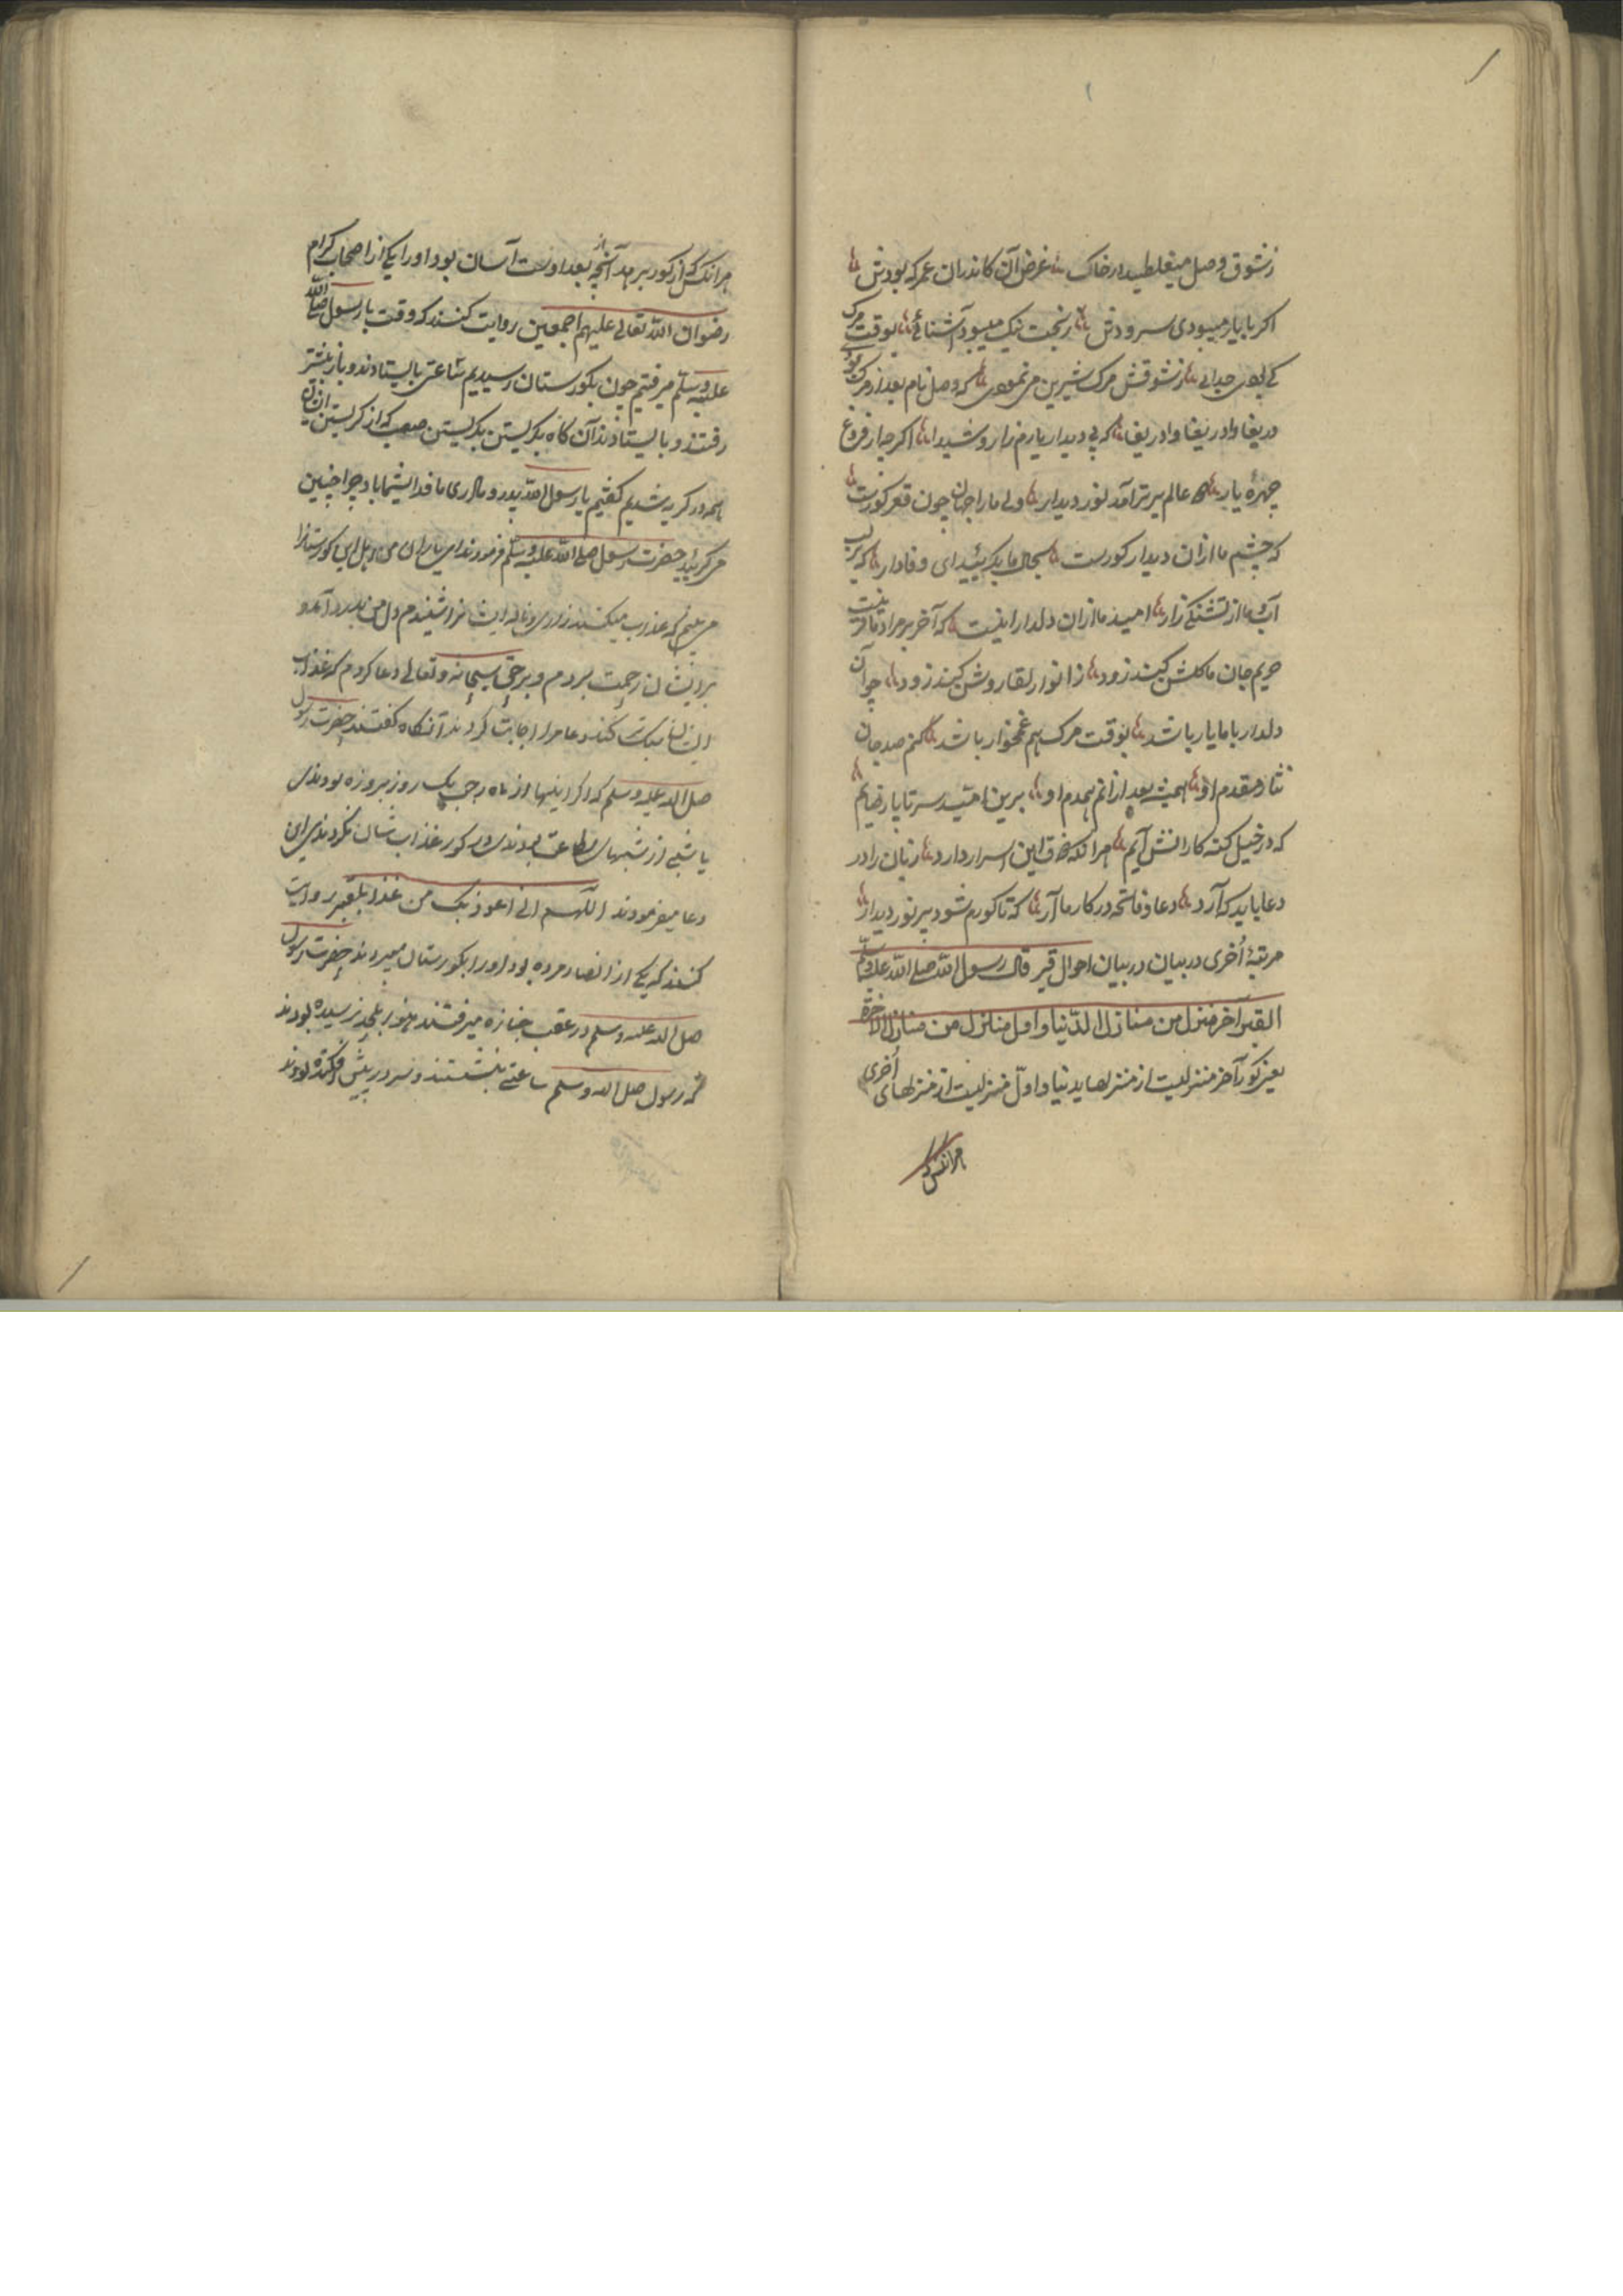 ز شوق وصل میغلطید در خاک غرض آن کاندران عمر که بودش
اکر با یار میبودی سر و دش ز بخت نیک میبود آشنائے بوقت مرک
کے بودی جدایے ز شوقش مرک شیرین می نمودی که وصل نام بعد از مرک بودی
دریغا وا دریغا وا دریغا که بی دیدار یارم زار و شیدا اکر چه از فروغ
چهرهٔ یار همه عالم پر برآمد نور دیدار ولی ما را جهان چون قعر کورست
که چشم ما ازان دیدار کورست بحال ما بکریید ای وفادار که بر لب
آب ما از تشنکی زار امید ما ازان دلدار اینست که آخر بر مراد
حریم جان ما کلشن کنید زود ز انوار لقا روشن کنید زود چو آن
دلدار با ما یار باشد بوقت مرک هم غمخوار باشد کنم صد جان
نثار مقدم او همیشه بعد ازانم همدم او برین امید سر تا پا رضایم
که در خیل کنه کارانش آیم هرانکه ذوق این اسرار دارد زبان را در
دعا باید که آرد دعا و فاتحه در کار ما آر که تا کورم شود پر نور دیدار
مرتبهٔ اُخری در بیان در بیان احوال قبر قال رسول الله صلی الله علیه وسلم
القبر آخر منزل من منازل الدّنیا و اول منازل من منازل الآخرة
یعنی کور آخر منزلیست از منزلهاء دنیا و اوّل منزلیست از منزلهای اُخری
هرانکس که
هرانکس که از کور برهد آنچه بعد از وست آسان بود او را یکے از اصحاب کرام
رضوان الله تعالی علیهم اجمعین روایت کنند که وقت با رسول صلی الله
علیه وسلم میرفتیم چون بکورستان رسیدیم ساعتی بایستادند و باز پیشتر
رفتند و بایستادند آن کاه بکریستن بکریستن صعب که از کریستن ایشان
همه در کریه شدیم کفتیم یا رسول الله پدر و مادر ما فدای شما باد چرا چنین
می کریید حضرت رسول صلی الله علیه وسلم فرمودند ای یاران من اهل این کورستان را
می بینم که عذاب میکنند زاری و ناله ایشان را شنیدم دل من بدرد آمد و
بر ایشان رحمت بردم و بر حق سبحانه و تعالی دعا کردم که عذاب
ایشان سبک کند دعا مرا اجابت کردند آنکاه کفتند حضرت رسول
صلی الله علیه وسلم که اکر اینها از ماه رجب یک روز بروزه بودندی
یا شبی از شبهای بطاعت بودندی در کور عذاب شان نکردندی این
دعا میفرمودند اللهم انی اعوذ بک من عذاب القبر روایت
کنند که یکے از انصار مرده بود او را بکورستان میبردند حضرت رسول
صلی الله علیه وسلم در عقب جنازه میرفتند هنوز بلحد نرسیده بودند
که رسول صلی الله وسلم ساعتے بنشستند و سر در پیش افکنده بودند